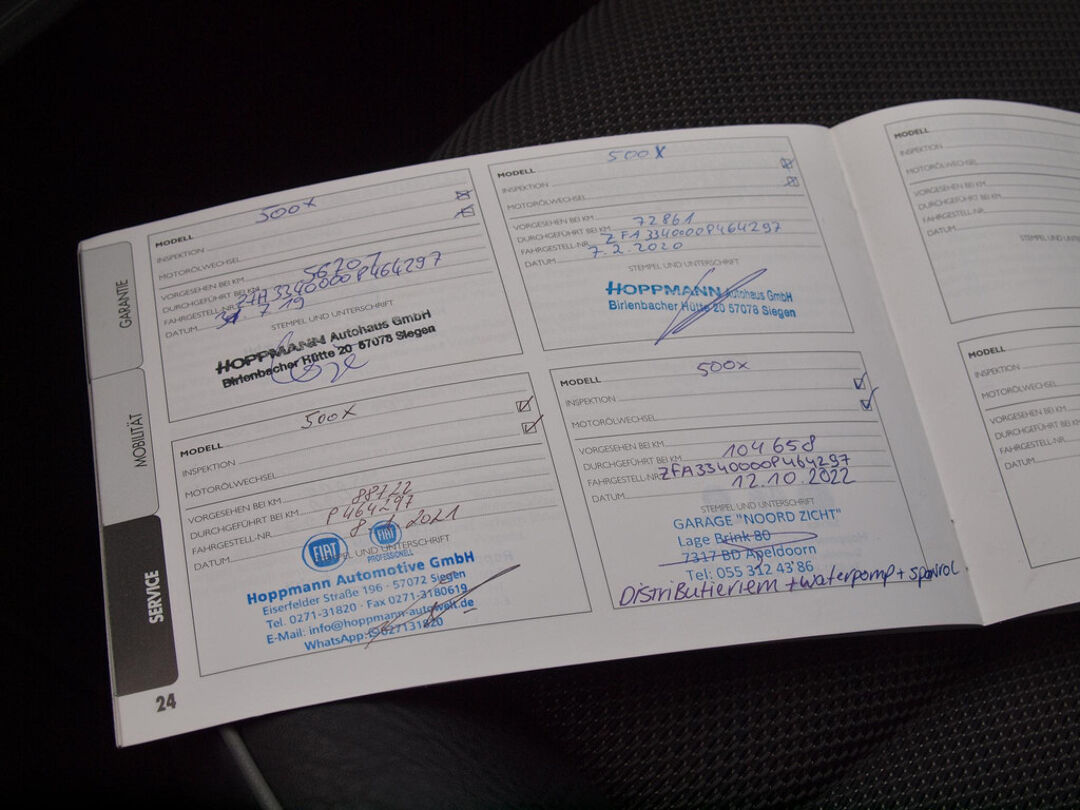 GARANTIE
MOBILITÄT
SERVICE
24
500X
MODELL
INSPEKTION
MOTORÖLWECHSEL
VORGESEHEN BEI KM
DURCHGEFÜHRT BEI KM 56707
FAHRGESTELL-NR. ZFA3340000P464297
DATUM 31.7.19
STEMPEL UND UNTERSCHRIFT
HOPPMANN Autohaus GmbH
Birlenbacher Hütte 20 57078 Siegen
500X
MODELL
INSPEKTION
MOTORÖLWECHSEL
VORGESEHEN BEI KM
DURCHGEFÜHRT BEI KM 72861
FAHRGESTELL-NR. ZFA3340000P464297
DATUM 7.2.2020
STEMPEL UND UNTERSCHRIFT
HOPPMANN Autohaus GmbH
Birlenbacher Hütte 20 57078 Siegen
500X
MODELL
INSPEKTION
MOTORÖLWECHSEL
VORGESEHEN BEI KM
DURCHGEFÜHRT BEI KM 88122
FAHRGESTELL-NR. P464297
DATUM 8. 2021
STEMPEL UND UNTERSCHRIFT
FIAT
FIAT
PROFESSIONELL
Hoppmann Automotive GmbH
Eiserfelder Straße 196 - 57072 Siegen
Tel. 0271-31820 · Fax 0271-3180619
E-Mail: info@hoppmann-autowelt.de
WhatsApp: 027131820
500X
MODELL
INSPEKTION
MOTORÖLWECHSEL
VORGESEHEN BEI KM
DURCHGEFÜHRT BEI KM 104658
FAHRGESTELL-NR. ZFA3340000P464297
DATUM 12.10.2022
STEMPEL UND UNTERSCHRIFT
GARAGE "NOORD ZICHT"
Lage Brink 80
7317 BD Apeldoorn
Tel: 055 312 43'86
Distributieriem + waterpomp + spanrol
MODELL
INSPEKTION
MOTORÖLWECHSEL
VORGESEHEN BEI KM
DURCHGEFÜHRT BEI KM
FAHRGESTELL-NR.
DATUM
STEMPEL UND
MODELL
INSPEKTION
MOTORÖLWECHSEL
VORGESEHEN BEI KM
DURCHGEFÜHRT BEI KM
FAHRGESTELL-NR.
DATUM